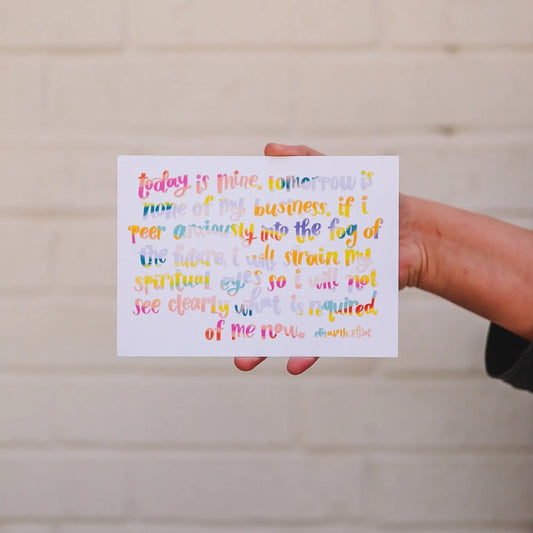 today is mine. tomorrow is
none of my business. if i
peer anxiously into the fog of
the future, i will strain my
spiritual eyes so i will not
see clearly what is required
of me now. elisabeth elliot